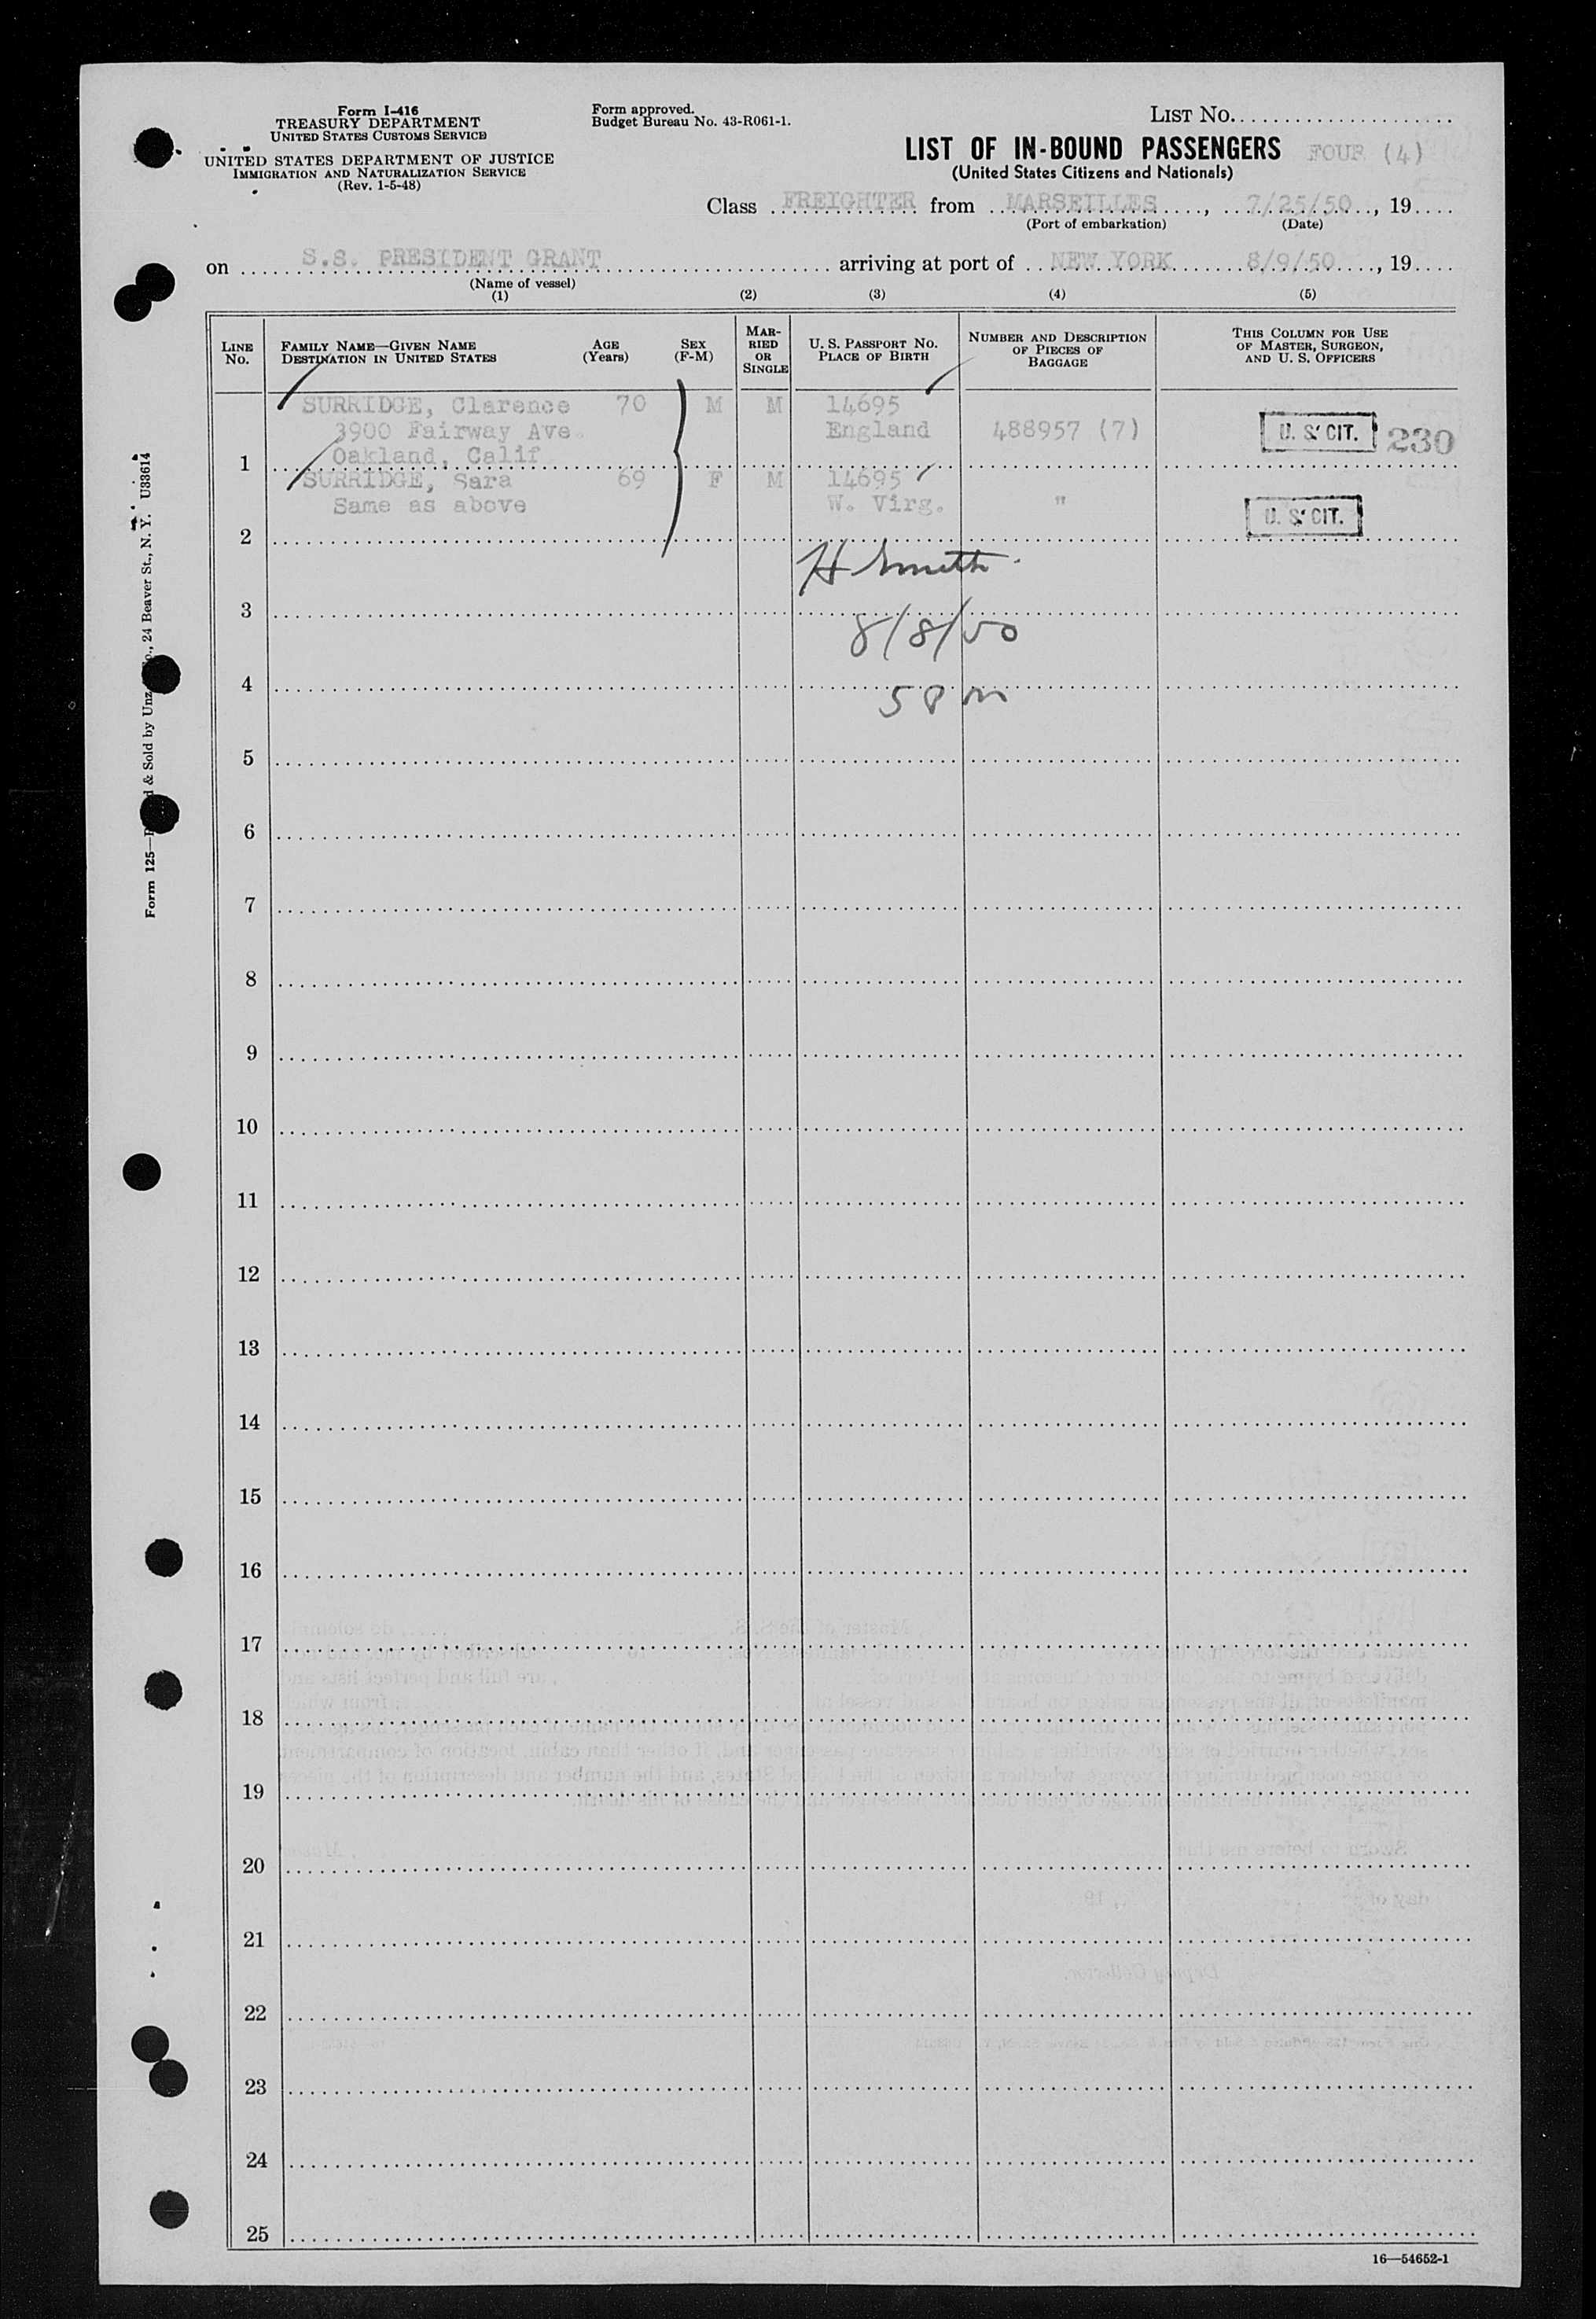 Form I-416
TREASURY DEPARTMENT
UNITED STATES CUSTOMS SERVICE
UNITED STATES DEPARTMENT OF JUSTICE
IMMIGRATION AND NATURALIZATION SERVICE
(Rev. 1-5-48)
Form approved.
Budget Bureau No. 43-R061-1.
LIST No.
LIST OF IN-BOUND PASSENGERS FOUR (4)
(United States Citizens and Nationals)
Class FREIGHTER from MARSEILLES, 7/25/50, 19
(Port of embarkation) (Date)
on S.S. PRESIDENT GRANT arriving at port of NEW YORK 8/9/50, 19
(Name of vessel)
(1) (2) (3) (4) (5)
LINE No.
FAMILY NAME—GIVEN NAME DESTINATION IN UNITED STATES
AGE (Years)
SEX (F-M)
MARRIED OR SINGLE
U. S. PASSPORT NO. PLACE OF BIRTH
NUMBER AND DESCRIPTION OF PIECES OF BAGGAGE
THIS COLUMN FOR USE OF MASTER, SURGEON, AND U. S. OFFICERS
SURRIDGE, Clarence 70 M M 14695
3900 Fairway Ave. England 488957 (7) U. S. CIT. 230
1 Oakland, Calif
SURRIDGE, Sara 69 F M 14695
Same as above W. Virg. " U. S. CIT.
2
H Smith
3
8/8/50
4
5 PM
5
6
7
8
9
10
11
12
13
14
15
16
17
18
19
20
21
22
23
24
25
16—54652-1
Form 125— & Sold by 24 Beaver St., N. Y. U33614